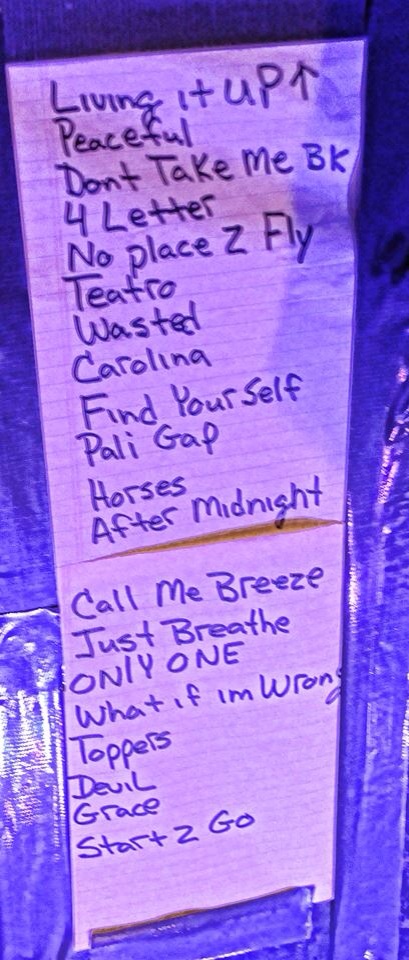 Living it UP↑
Peaceful
Dont Take Me BK
4 Letter
No place 2 Fly
Teatro
Wasted
Carolina
Find Your Self
Pali Gap
Horses
After Midnight
Call Me Breeze
Just Breathe
ONLY ONE
What if im Wrong
Toppers
Devil
Grace
Start 2 Go